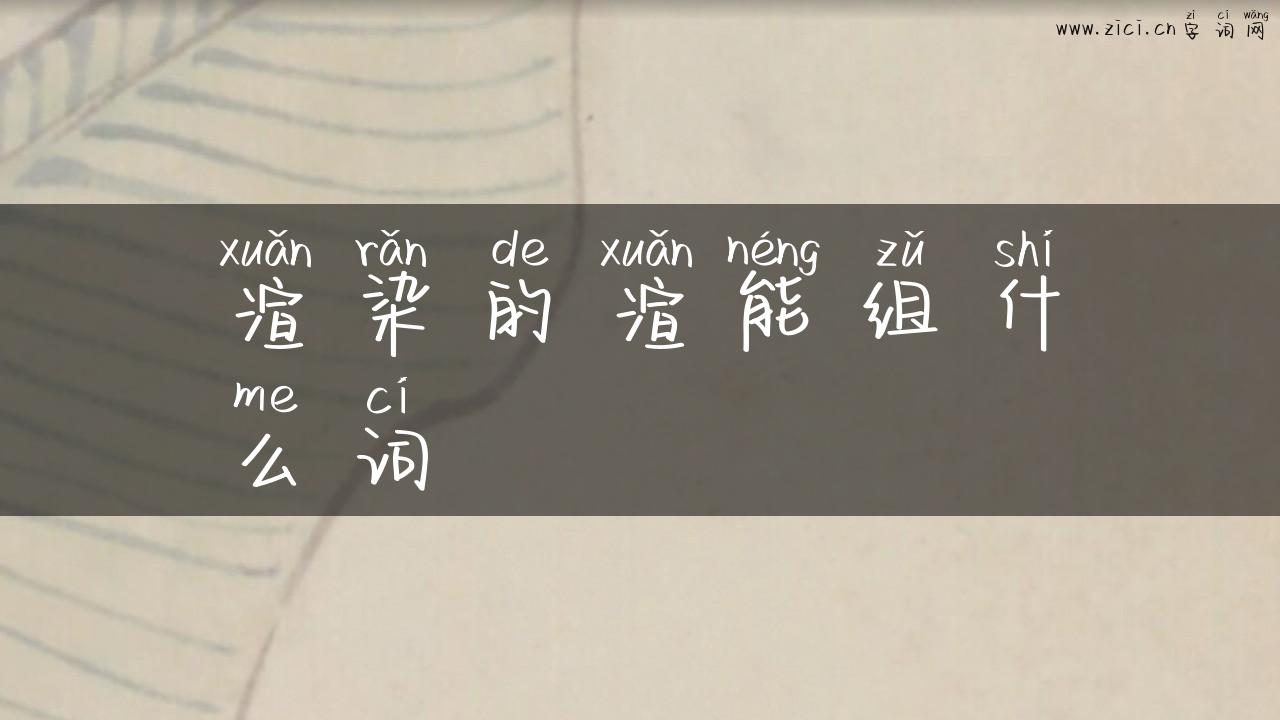 zì cí wǎng
www.zici.cn 字词网
xuǎn rǎn de xuǎn néng zǔ shí
渲染的渲能组什
me cí
么词